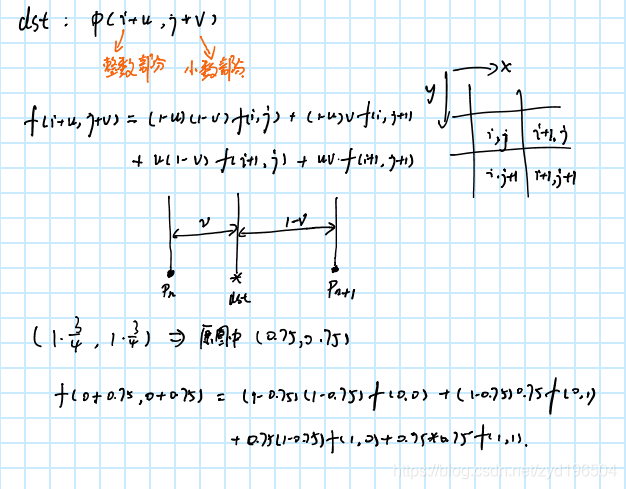 dst : P(i+u, j+v)
整数部分 小数部分
x
y
f(i+u, j+v) = (1-u)(1-v) f(i,j) + (1-u)v f(i,j+1)
+ u(1-v) f(i+1,j) + uv f(i+1,j+1)
i,j i+1,j
i,j+1 i+1,j+1
v 1-v
Pn dst Pn+1
(1·3/4, 1·3/4) ⇒ 原图中 (0.75, 0.75)
f(0+0.75, 0+0.75) = (1-0.75)(1-0.75) f(0,0) + (1-0.75)0.75 f(0,1)
+ 0.75(1-0.75) f(1,0) + 0.75*0.75 f(1,1).
https://blog.csdn.net/zyd196504